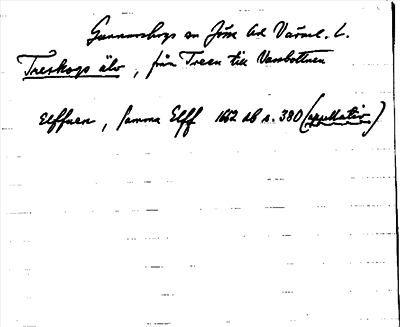 Gunnarskogs sn Jösse hd Värml. l.
Treskogs älv, från Treen till Vassbottnen
Elffuen, samma Elff 1662 ab s. 380 (appellativ)